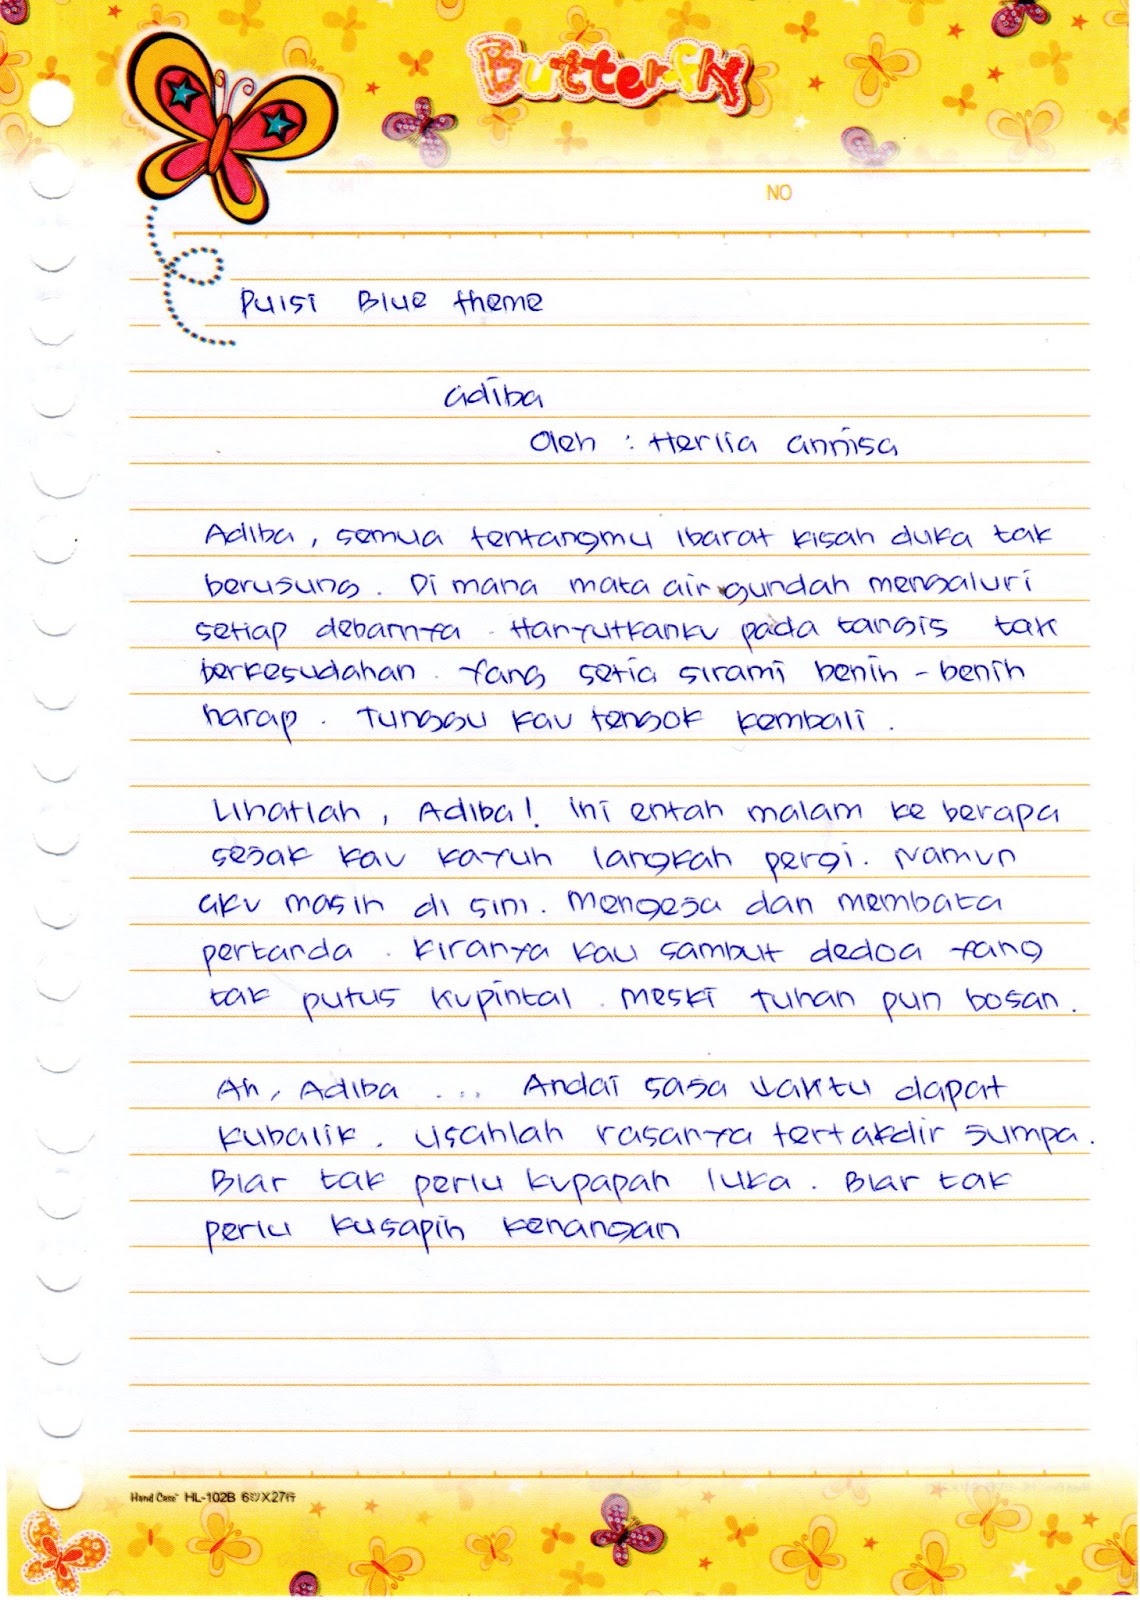 Butterfly
NO
Puisi Blue theme
Adiba
Oleh : Herlia annisa
Adiba, semua tentangmu ibarat kisah duka tak
berusung. Di mana mata air gundah mengaluri
setiap debarnya. Hanyutkanku pada tangis tak
berkesudahan. Yang setia sirami benih-benih
harap. Tunggu kau tengok kembali.
Lihatlah, Adiba! Ini entah malam ke berapa
sejak kau kayuh langkah pergi. Namun
aku masih di sini. Mengeja dan membaca
pertanda. Kiranya kau sambut dedoa yang
tak putus kupintal. Meski Tuhan pun bosan.
Ah, Adiba ... Andai saja waktu dapat
kubalik. Usahlah rasanya tertakdir jumpa.
Biar tak perlu kupapah luka. Biar tak
perlu kusapih kenangan
Hand Case HL-102B 6 X27行